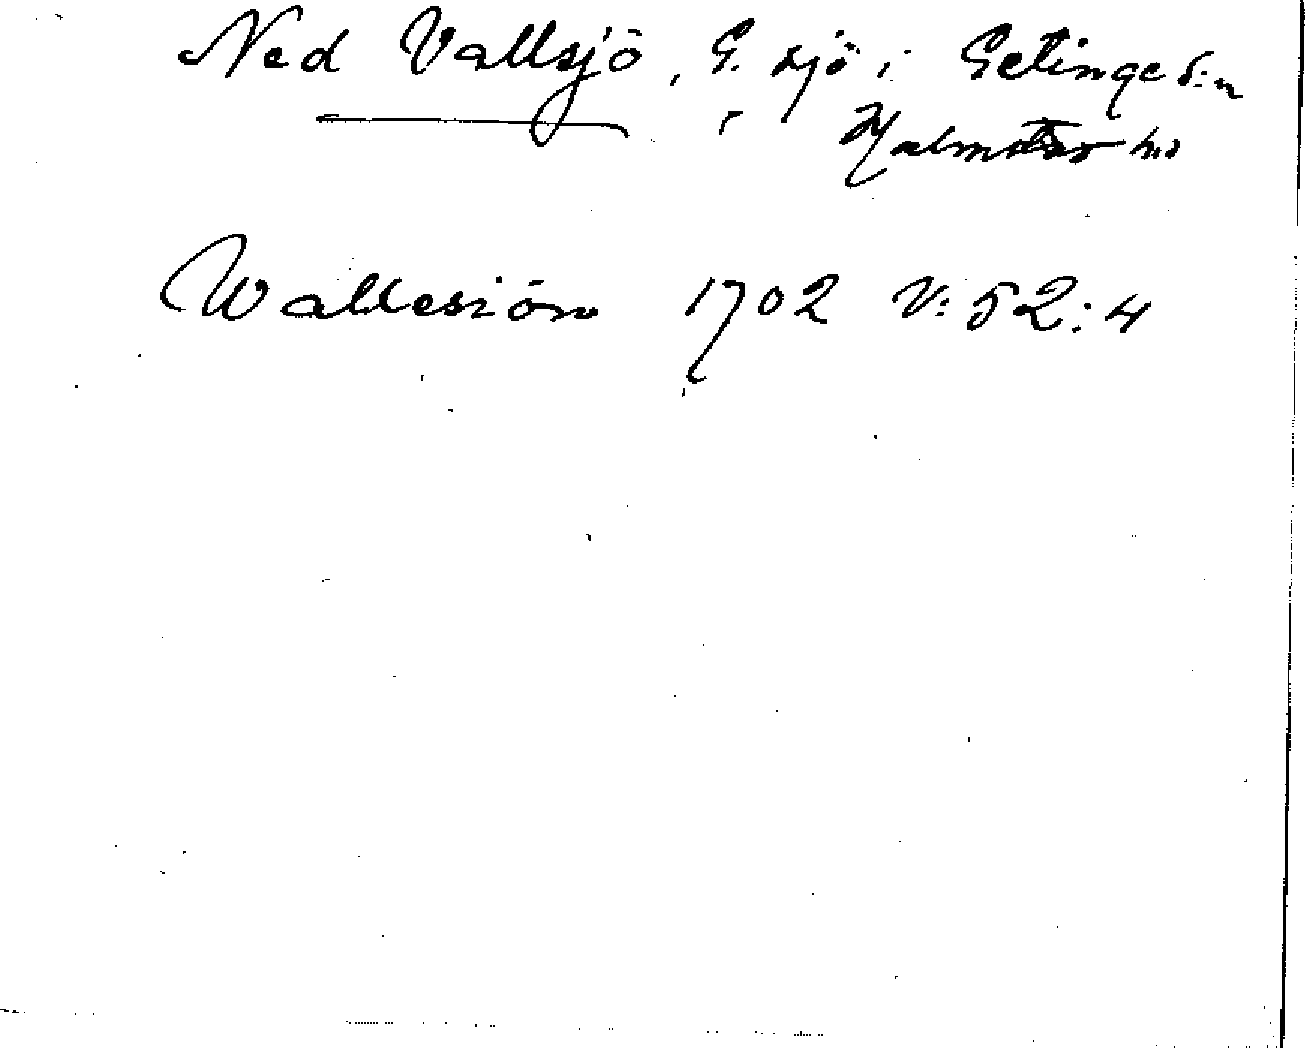 Ned Vallsjö, G. sjö i Getinge s:n
Halmstad hd
Wallesiön 1702 V:52:4